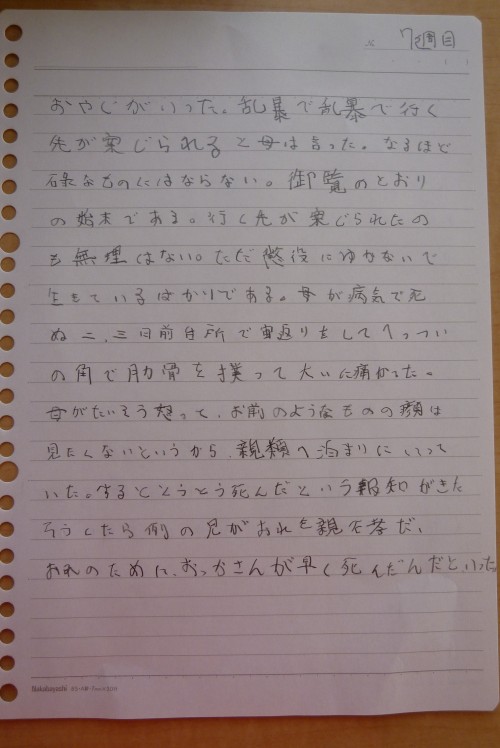 7週目
おやじがいった。乱暴で乱暴で行く
先が案じられると母は言った。なるほど
碌なものにはならない。御覧のとおり
の始末である。行く先が案じられたの
も無理はない。ただ懲役にゆかないで
生きているばかりである。母が病気で死
ぬ二、三日前台所で宙返りをしてへっつい
の角で肋骨を撲って大いに痛かった。
母がたいそう怒って、お前のようなものの顔は
見たくないというから、親類へ泊まりにいって
いた。するととうとう死んだという報知がきた
そうしたら例の兄がおれを親不孝だ、
おれのために、おっかさんが早く死んだんだといった。